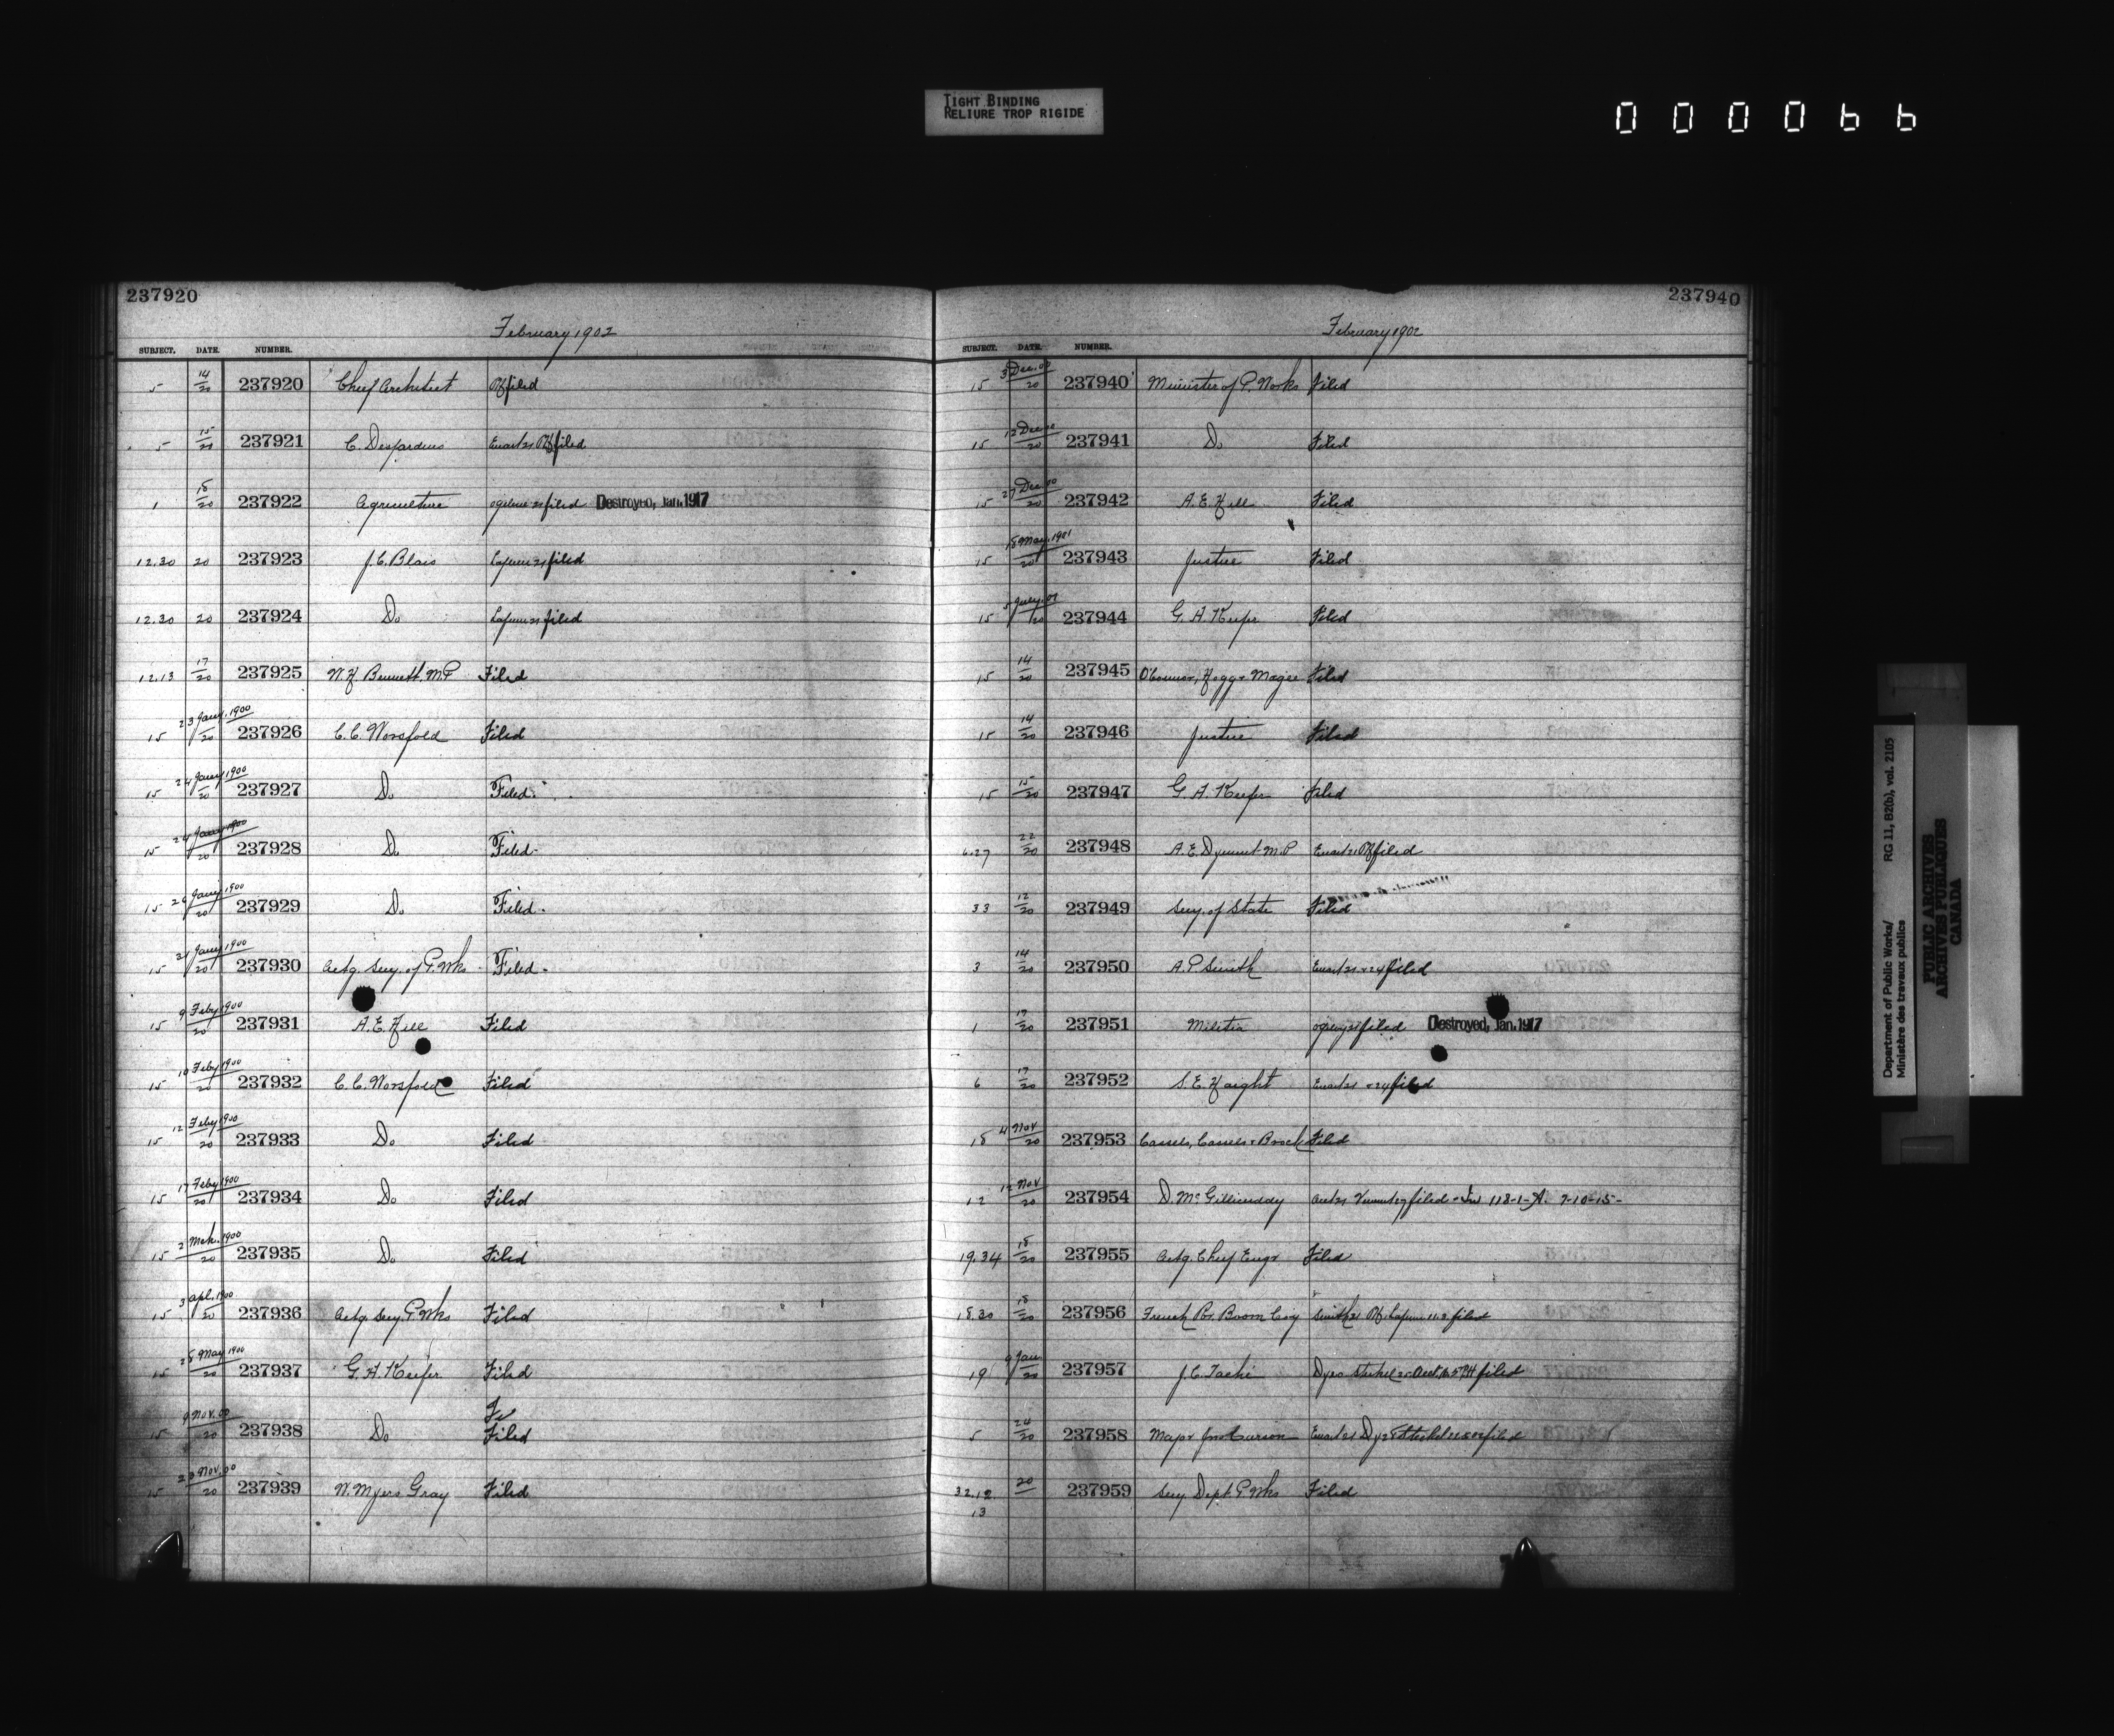 TIGHT BINDING
RELIURE TROP RIGIDE
000066
237920
February 1902
SUBJECT. DATE. NUMBER.
5 14/20 237920 Chief Architect filed
5 15/20 237921 C. Desjardins Ewart 21 filed
1 18/20 237922 Agriculture filed Destroyed, Jan. 1917
12.30 20 237923 J. C. Blais Lafleur 21 filed
12.30 20 237924 Do Lafleur 21 filed
12.13 17/20 237925 W. H. Bennett. M.P Filed
15 23 Jany. 1900/20 237926 C. C. Worsfold Filed
15 24 Jany 1900/20 237927 Do Filed
15 24 Jany 1900/20 237928 Do Filed
15 29 Jany 1900/20 237929 Do Filed
15 31 Jany 1900/20 237930 Actg. Secy. of P. Wks Filed
15 9 Feby 1900/20 237931 A. E. Hill Filed
15 10 Feby 1900/20 237932 C. C. Worsfold Filed
15 12 Feby 1900/20 237933 Do Filed
15 17 Feby 1900/20 237934 Do Filed
15 2 Mch. 1900/20 237935 Do Filed
15 3 Apl. 1900/20 237936 Actg. Secy. P. Wks Filed
15 28 May 1900/20 237937 G. A. Keefer Filed
15 9 Nov. 00/20 237938 Do Filed
15 20 Nov. 00/20 237939 W. Myers Gray Filed
237940
February 1902
SUBJECT. DATE. NUMBER.
15 3 Dec. 00/20 237940 Minister of P. Works Filed
15 12 Dec 00/20 237941 Do Filed
15 27 Dec. 00/20 237942 A. E. Hill Filed
15 18 May. 1901/20 237943 Justice Filed
15 5 July. 01/20 237944 G. A. Keefer Filed
15 14/20 237945 O'Connor, Hogg & Magee Filed
15 14/20 237946 Justice Filed
15 15/20 237947 G. A. Keefer filed
6.27 22/20 237948 A. E. Dyment M.P Ewart 21 filed
33 12/20 237949 Secy. of State Filed
3 14/20 237950 A. P Smith Ewart 21 & 24 filed
1 17/20 237951 Militia filed Destroyed, Jan. 1917
6 17/20 237952 S. E. Haight Ewart 21 & 24 filed
18 4 Nov/20 237953 Cassels, Cassels & Brock Filed
12 12 Nov/20 237954 D. McGillicuddy filed - 118-1-A. 7-10-15-
19.34 18/20 237955 Actg. Chief Engr Filed
18.30 18/20 237956 French Rr. Boom Coy Smith 21 Lafleur 11.3 filed
19 9 Jan/20 237957 J. C. Taché Steckel filed
5 24/20 237958 Major Ewart 21 Steckel filed
32.12.13 20 237959 Secy Dept P. Wks Filed
Department of Public Works/ RG 11, B2(b), vol. 2105
Ministère des travaux publics
PUBLIC ARCHIVES
ARCHIVES PUBLIQUES
CANADA